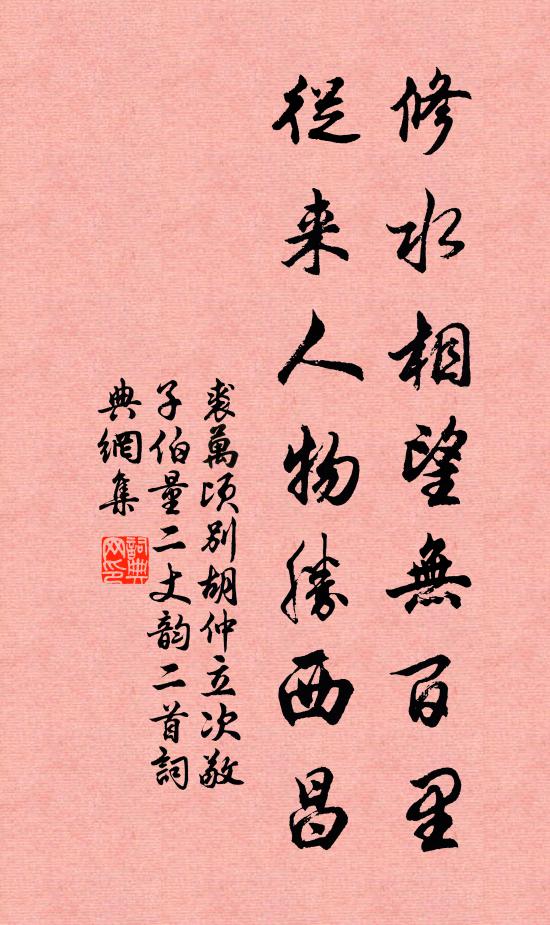 修水相望無百里
從来人物勝西昌
裘萬頃別胡仲立次敬
子伯量二丈韵二首詞
典網集
詞典网印